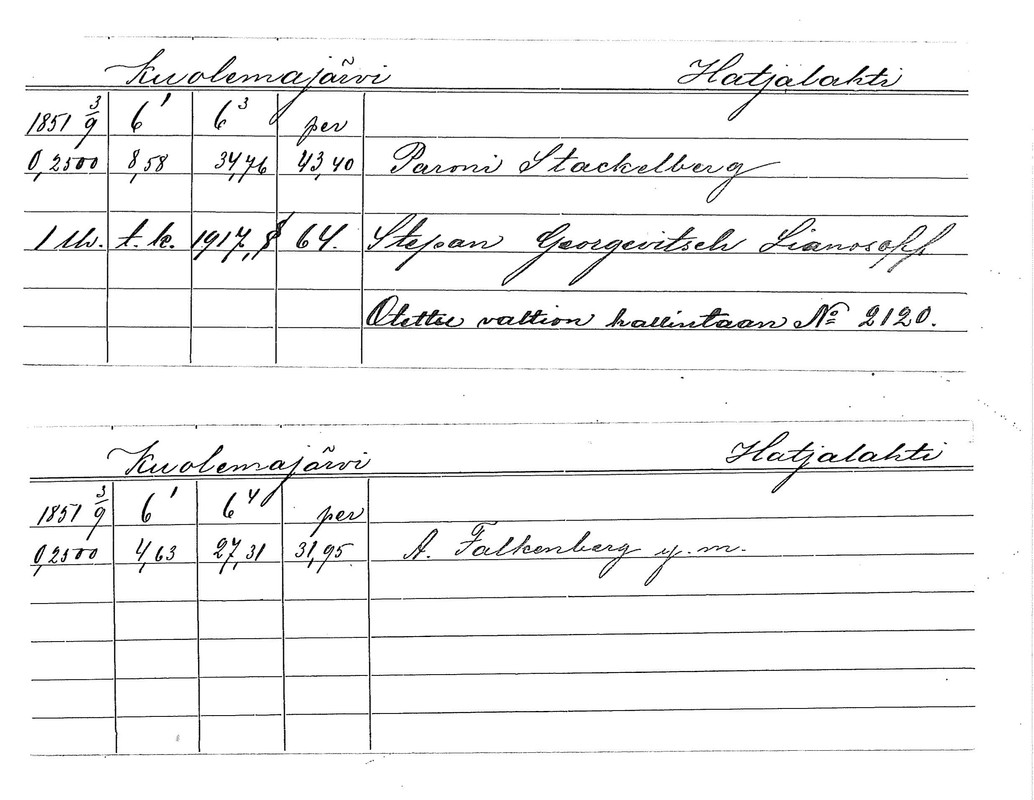 Kuolemajärvi Hatjalahti
1851 3/9 6¹ 6³ per
0,2500 8,58 34,76 43,40 Paroni Stackelberg
1 lh. t. k. 1917, § 64. Stepan Georgevitsch Lianosoff
Otettu valtion hallintaan No 2120.
Kuolemajärvi Hatjalahti
1851 3/9 6¹ 6⁴ per
0,2500 4,63 27,31 31,95 A. Falkenberg y. m.